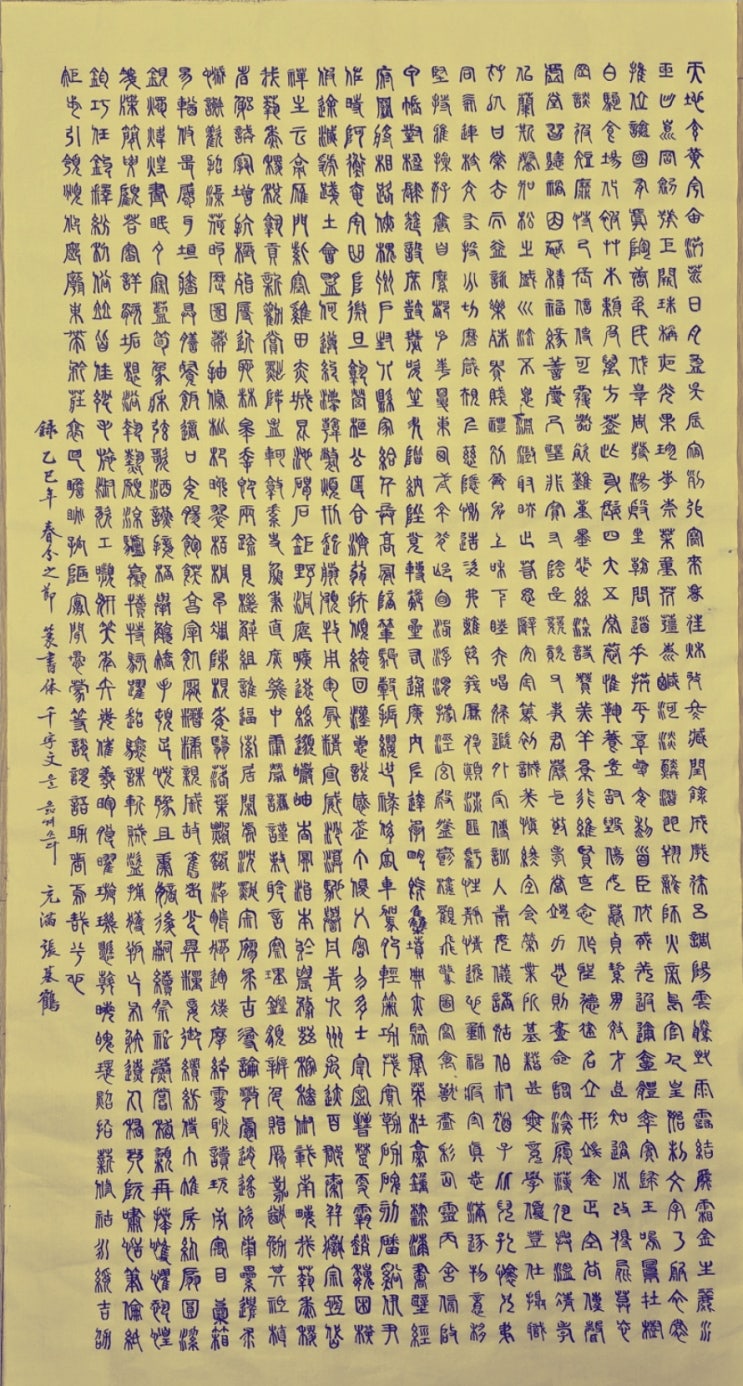 天地玄黃宇宙洪荒日月盈昃辰宿列張寒來暑往秋收冬藏閏餘成歲律呂調陽雲騰致雨露結爲霜金生麗水
玉出崑岡劍號巨闕珠稱夜光果珍李柰菜重芥薑海鹹河淡鱗潛羽翔龍師火帝鳥官人皇始制文字乃服衣裳
推位讓國有虞陶唐弔民伐罪周發湯殷坐朝問道垂拱平章愛育黎首臣伏戎羌遐邇壹體率賓歸王鳴鳳在樹
白駒食場化被草木賴及萬方蓋此身髮四大五常恭惟鞠養豈敢毀傷女慕貞潔男效才良知過必改得能莫忘
罔談彼短靡恃己長信使可覆器欲難量墨悲絲染詩讚羔羊景行維賢克念作聖德建名立形端表正空谷傳聲
虛堂習聽禍因惡積福緣善慶尺璧非寶寸陰是競資父事君曰嚴與敬孝當竭力忠則盡命臨深履薄夙興溫凊
似蘭斯馨如松之盛川流不息淵澄取映容止若思言辭安定篤初誠美愼終宜令榮業所基籍甚無竟學優登仕攝職
存以甘棠去而益詠樂殊貴賤禮別尊卑上和下睦夫唱婦隨外受傅訓入奉母儀諸姑伯叔猶子比兒孔懷兄弟
同氣連枝交友投分切磨箴規仁慈隱惻造次弗離節義廉退顚沛匪虧性靜情逸心動神疲守眞志滿逐物意移
堅持雅操好爵自縻都邑華夏東西二京背邙面洛浮渭據涇宮殿盤鬱樓觀飛驚圖寫禽獸畫彩仙靈丙舍傍啓
甲帳對楹肆筵設席鼓瑟吹笙陞階納陛弁轉疑星右通廣內左達承明旣集墳典亦聚群英杜稿鍾隸漆書壁經
府羅將相路俠槐卿戶封八縣家給千兵高冠陪輦驅轂振纓世祿侈富車駕肥輕策功茂實勒碑刻銘磻溪伊尹
佐時阿衡奄宅曲阜微旦孰營桓公匡合濟弱扶傾綺回漢惠說感武丁俊乂密勿多士寔寧晉楚更霸趙魏困橫
假途滅虢踐土會盟何遵約法韓弊煩刑起翦頗牧用軍最精宣威沙漠馳譽丹靑九州禹跡百郡秦幷嶽宗恒岱
禪主云亭雁門紫塞雞田赤城昆池碣石鉅野洞庭曠遠綿邈巖岫杳冥治本於農務玆稼穡俶載南畝我藝黍稷
我藝黍稷稅熟貢新勸賞黜陟孟軻敦素史魚秉直庶幾中庸勞謙謹敕聆音察理鑑貌辨色貽厥嘉猷勉其祗植
省躬譏誡寵增抗極殆辱近恥林皐幸卽兩疏見機解組誰逼索居閑處沈默寂寥求古尋論散慮逍遙欣奏累遣
慼謝歡招渠荷的歷園莽抽條枇杷晩翠梧桐早凋陳根委翳落葉飄颻遊鯤獨運凌摩絳霄耽讀翫市寓目囊箱
易輶攸畏屬耳垣墻具膳餐飯適口充腸飽飫烹宰飢厭糟糠親戚故舊老少異糧妾御績紡侍巾帷房紈扇圓潔
銀燭煒煌晝眠夕寐藍筍象床絃歌酒讌接杯擧觴矯手頓足悅豫且康嫡後嗣續祭祀蒸嘗稽顙再拜悚懼恐惶
牋牒簡要顧答審詳骸垢想浴執熱願凉驢騾犢特駭躍超驤誅斬賊盜捕獲叛亡布射遼丸嵇琴阮嘯恬筆倫紙
鈞巧任釣釋紛利俗竝皆佳妙毛施淑姿工嚬姸笑年矢每催羲暉朗曜璇璣懸斡晦魄環照指薪修祜永綏吉劭
矩步引領俯仰廊廟束帶矜莊徘徊瞻眺孤陋寡聞愚蒙等誚謂語助者焉哉乎也
錄 乙巳年 春分之節 篆書体 千字文을 옮겨쓰다 元滿 張基鶴